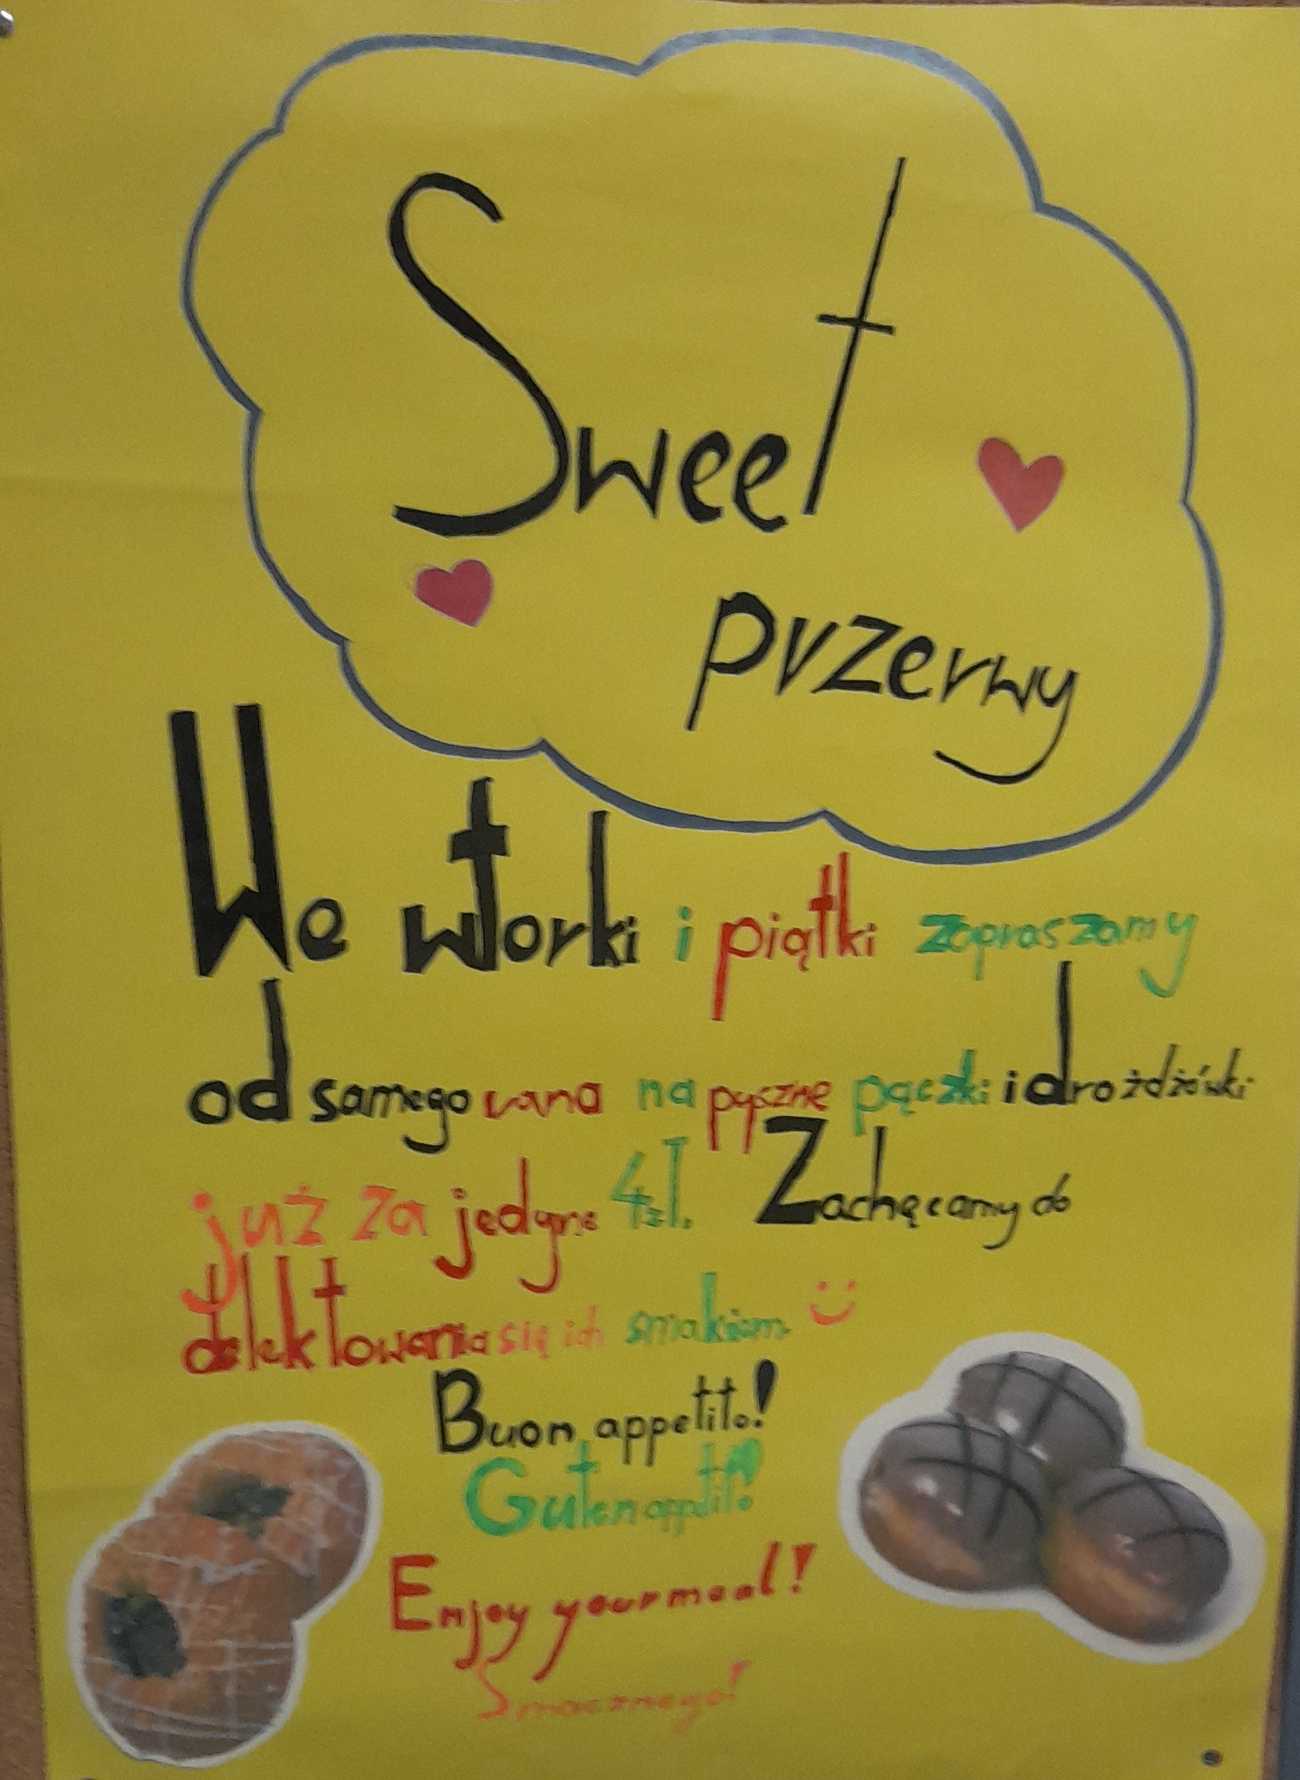 Sweet
przerwy
We wtorki i piątki zapraszamy
od samego rana na pyszne pączki i drożdżówki
już za jedyne 4zł. Zachęcamy do
delektowania się ich smakiem
Buon appetito!
Guten appetit!
Enjoy your meal!
Smacznego!